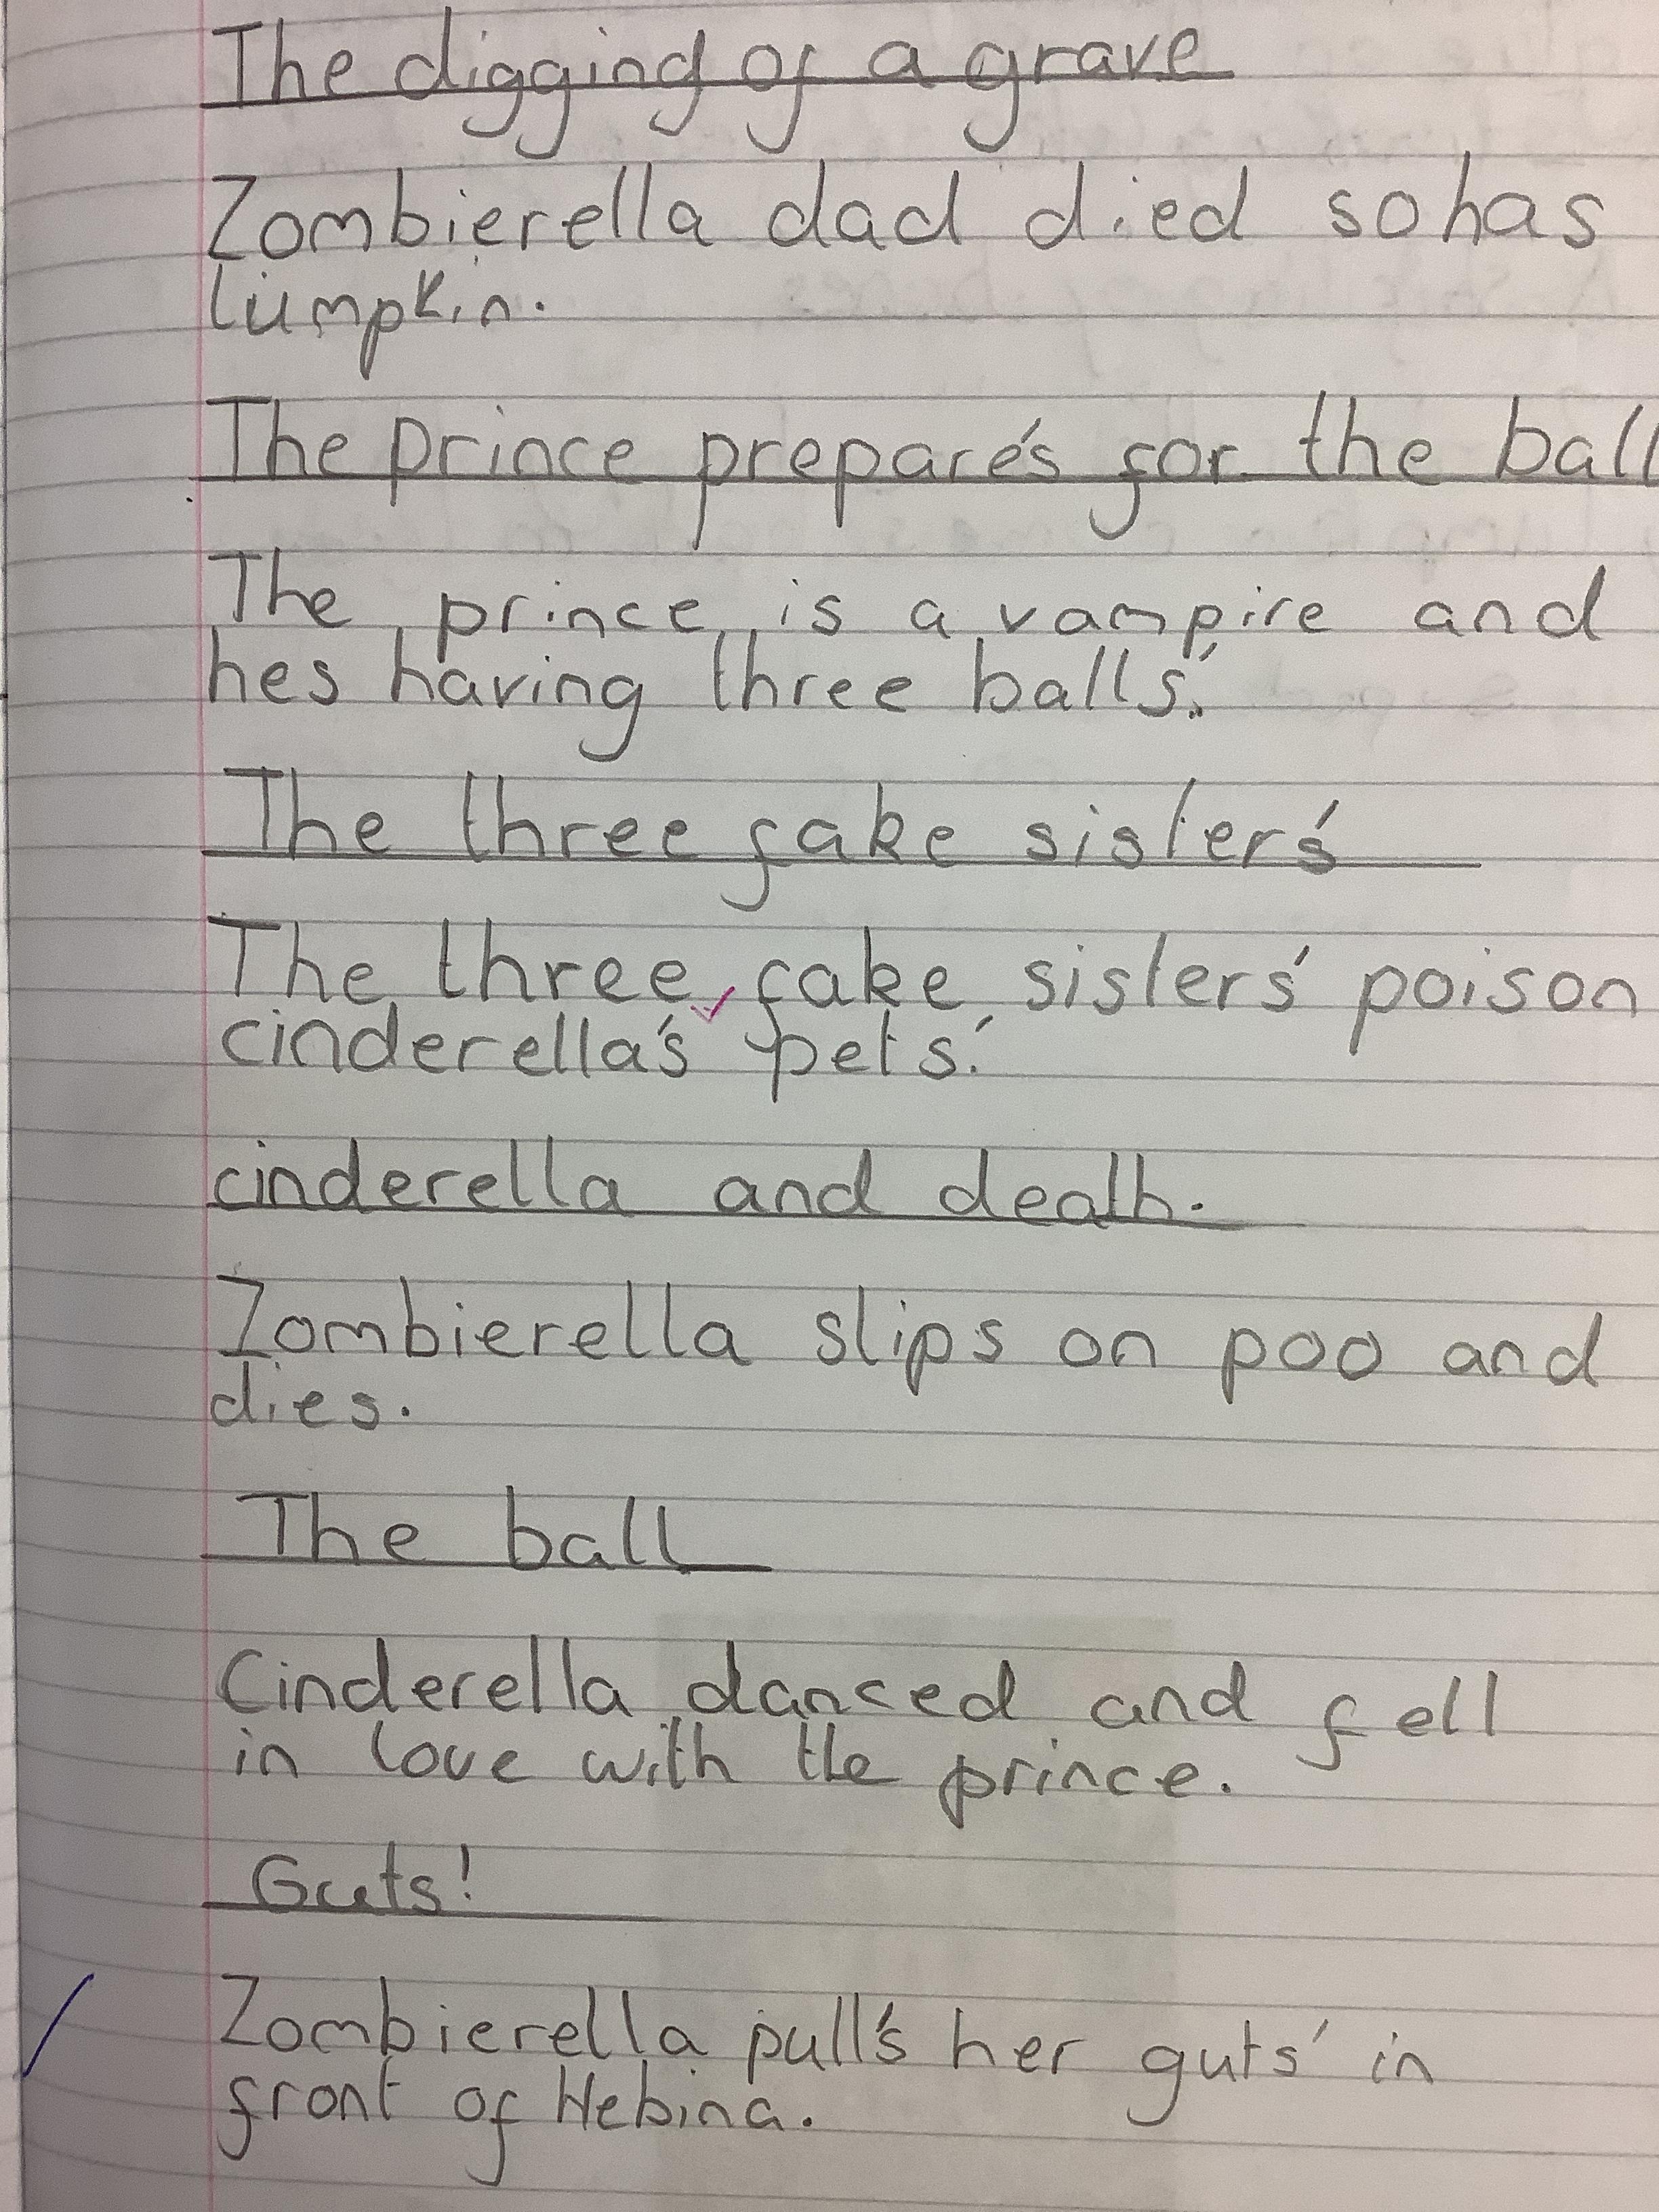 The digging of a grave
Zombierella dad died so has
lumpkin.
The prince prepare's for the ball
The prince is a vampire and
hes having three balls'.
The three fake sister's
The three fake sisters' poison
cinderella's pets'.
cinderella and death.
Zombierella slips on poo and
dies.
The ball
Cinderella danced and fell
in love with the prince.
Guts!
Zombierella pull's her guts' in
front of Hebina.